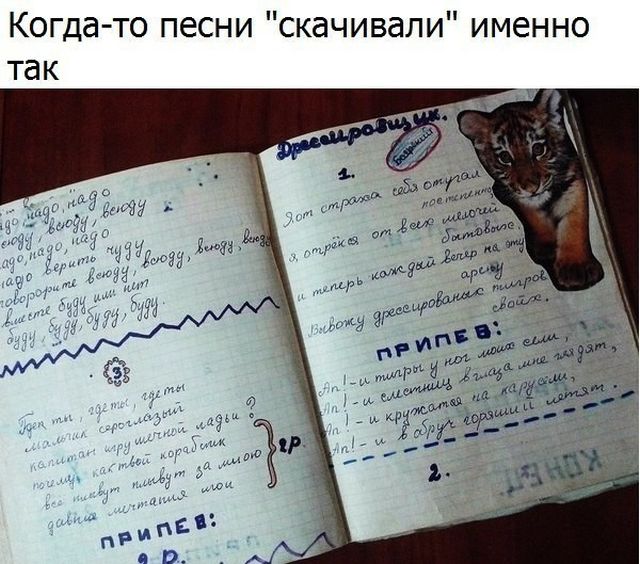 Когда-то песни "скачивали" именно
так
надо, надо, надо
всюду, всюду, всюду
надо, надо, надо
надо верить чуду
говорорите всюду, всюду, всюду, всюду
вместе буду или нет
буду, буду, буду, буду.
3
Где ты, где ты, где ты
мальчик сероглазый
капитан игрушечной ладьи ?
почему
кораблик
все плывут плывут за мною
давние мечтания мои
2 р.
ПРИПЕВ:
2 р.
Дрессировщик.
Боярский
1.
Я от страха себя отучал
постепенно,
Я отрёкся от всех мелочей
бытовых.
и теперь каждый вечер на эту
арену
Вывожу дрессированых тигров
своих.
ПРИПЕВ:
Ап! - и тигры у ног моих сели,
Ап! - и с лестниц в глаза мне глядят,
Ап! - и кружатся на карусели,
Ап! - и в обруч горящий летят.
2.
КОНЕЦ